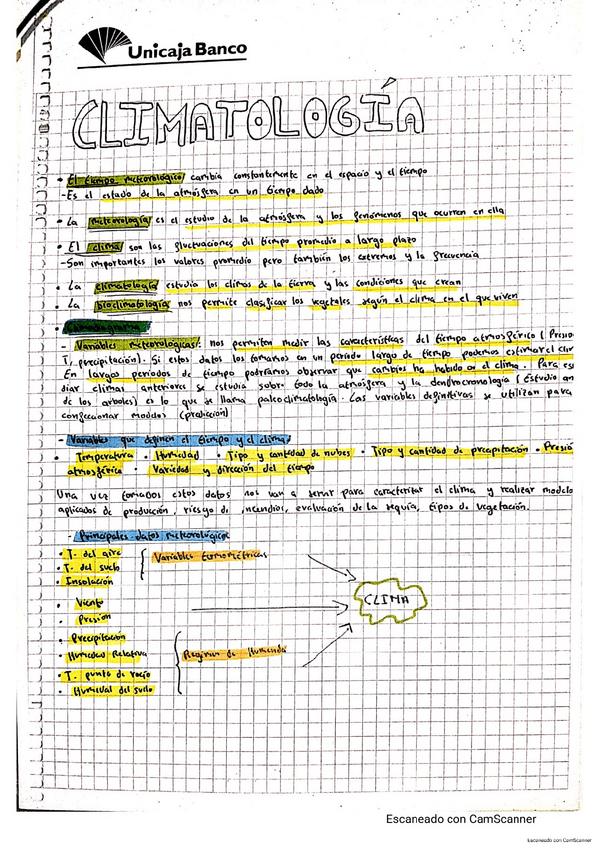 Unicaja Banco
CLIMATOLOGÍA
• El tiempo meteorológico cambia constantemente en el espacio y el tiempo
- Es el estado de la atmósfera en un tiempo dado
• La meteorología es el estudio de la atmósfera y los fenómenos que ocurren en ella
• El clima son las fluctuaciones del tiempo promedio a largo plazo
- Son importantes los valores promedio pero también los extremos y la frecuencia
• La climatología estudia los climas de la tierra y las condiciones que crean
• La bioclimatología nos permite clasificar los vegetales según el clima en el que viven
- Variables meteorológicas: nos permiten medir las características del tiempo atmosférico (Presio
T, precipitación). Si estos datos los tomamos en un periodo largo de tiempo podemos estimar el clim
En largos periodos de tiempo podríamos observar que cambios ha habido en el clima. Para es
diar climas anteriores se estudia sobre todo la atmósfera y la dendrocronología (Estudio an
de los arboles) es lo que se llama paleoclimatología. Las variables definitivas se utilizan para
confeccionar modelos (predicción)
- Variables que definen el tiempo y el clima
• Temperatura • Humedad • Tipo y cantidad de nubes • Tipo y cantidad de precipitación • Presió
atmosférica • Variedad y dirección del tiempo
Una vez tomados estos datos nos van a servir para caracterizar el clima y realizar modelo
aplicados de producción, riesgo de incendios, evaluación de la sequía, tipos de vegetación.
- Principales datos meteorológicos
• T. del aire
Variables termométricas
• T. del suelo
• Insolación
• Viento
CLIMA
• Presión
• Precipitación
• Humedad Relativa
Regimen de Humedad
• T. punto de rocío
• Humedad del suelo
Escaneado con CamScanner
Escaneado con CamScanner